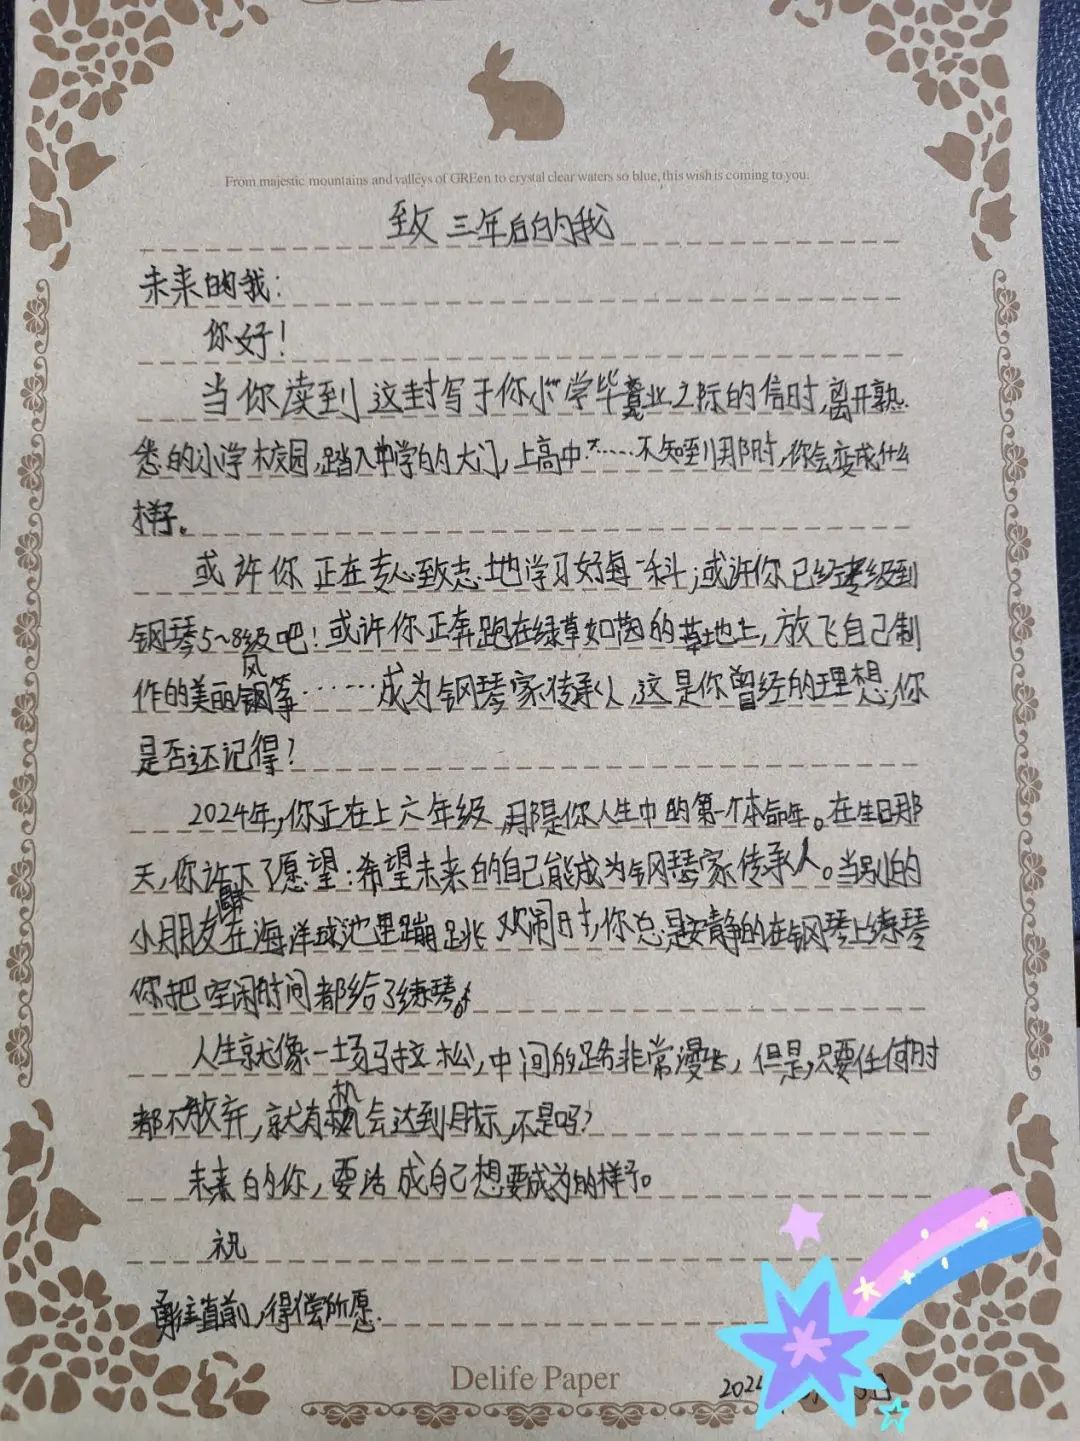 From majestic mountains and valleys of GREen to crystal clear waters so blue, this wish is coming to you.
致三年后的我
未来的我：
你好！
当你读到这封写于你小学毕业之际的信时,离开熟
悉的小学校园,踏入中学的大门,上高中……不知到那时,你会变成什么
样子。
或许你正在专心致志地学习好每一科；或许你已经考级到
钢琴5~8级吧！或许你正奔跑在绿草如茵的草地上，放飞自己制
作的美丽风筝……成为钢琴家传承人,这是你曾经的理想,你
是否还记得？
2024年,你正在上六年级,那是你人生中的第一个本命年。在生日那
天,你许下了愿望：希望未来的自己能成为钢琴家传承人。当别的
小朋友在海洋球池里蹦跳欢闹时,你总是安静的在钢琴上练琴
你把空闲时间都给了练琴。
人生就像一场马拉松,中间的路非常漫长,但是,只要任何时
都不放弃,就有机会达到目标,不是吗？
未来的你,要活成自己想要成为的样子。
祝
勇往直前,得偿所愿.
Delife Paper
202
日